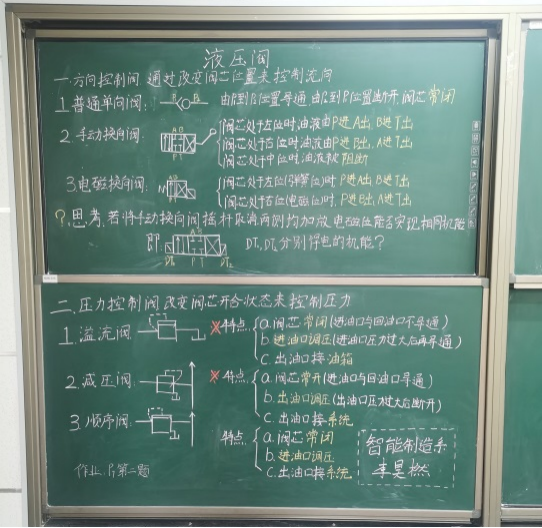 液压阀
一.方向控制阀 通过改变阀芯位置来控制流向
1.普通单向阀:
阀芯常闭
2.手动换向阀:
阀芯处于左位时,油液由P进A出,B进T出
阀芯处于右位时,油液由P进B出,A进T出
阀芯处于中位时,油液被阻断
3.电磁换向阀:
阀芯处于左位(弹簧位)时 P进A出,B进T出
阀芯处于右位(电磁位)时, P进B出, A进T出
?.思考.若将手动换向阀摇杆取消两侧均加放电磁位能否实现相同机能
分别得电的机能?
二.压力控制阀 改变阀芯开合状态来控制压力
1.溢流阀:
特点 a.阀芯常闭(进油口与回油口不导通)
b.进油口调压(进油口压力过大后再导通)
c.出油口接油箱
2.减压阀:
特点 a.阀芯常开(进油口与回油口导通)
b.出油口调压(出油口压力过大后断开)
c.出油口接系统
3.顺序阀:
特点. a.阀芯常闭
b.进油口调压
c.出油口接系统
智能制造系
李昊燃
第一题